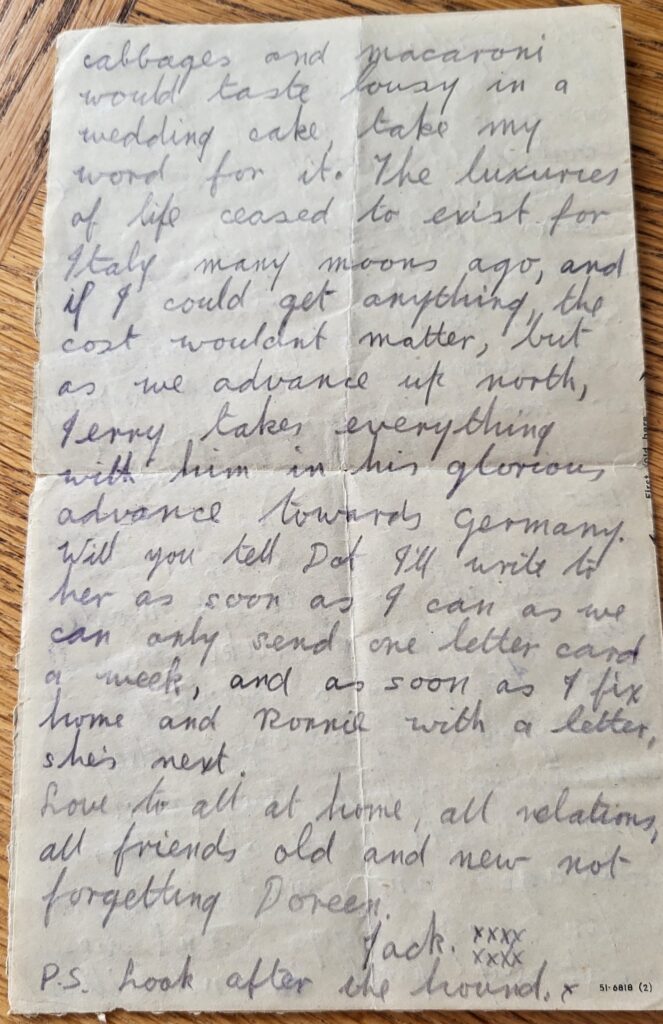 cabbages and macaroni
would taste lousy in a
wedding cake, take my
word for it. The luxuries
of life ceased to exist for
Italy many moons ago, and
if I could get anything, the
cost wouldnt matter, but
as we advance up north,
Jerry takes everything
with him in his glorious
advance towards Germany.
Will you tell Dot I'll write to
her as soon as I can as we
can only send one letter card
a week, and as soon as I fix
home and Ronnie with a letter,
she's next.
Love to all at home, all relations,
all friends old and new not
forgetting Doreen.
Jack. xxxx
xxxx
P.S. Look after the hound. x
51-6818 (2)